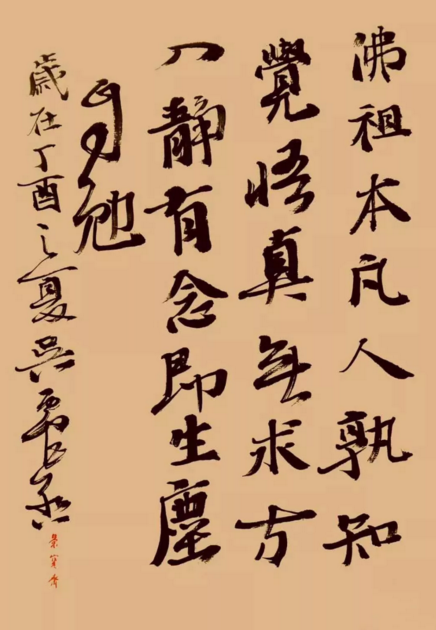 佛祖本凡人孰知
覺悟真無求方
入靜有念即生塵
自勉
歲在丁酉之夏吳